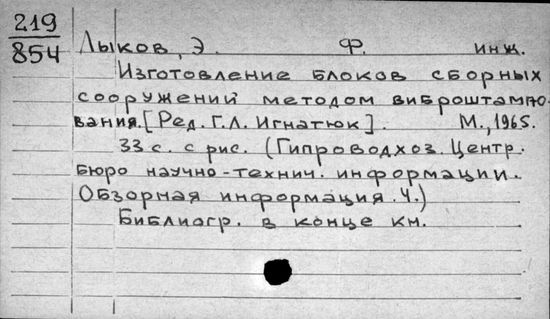 219
854
Лыков, Э. Ф. инж.
Изготовление блоков сборных
сооружений методом виброштампо-
вания. [Ред. Г.Л. Игнатюк]. М., 1965.
33 с. с рис. (Гипроводхоз. Центр.
бюро научно-технич. информации.
Обзорная информация. 4.)
Библиогр. в конце кн.